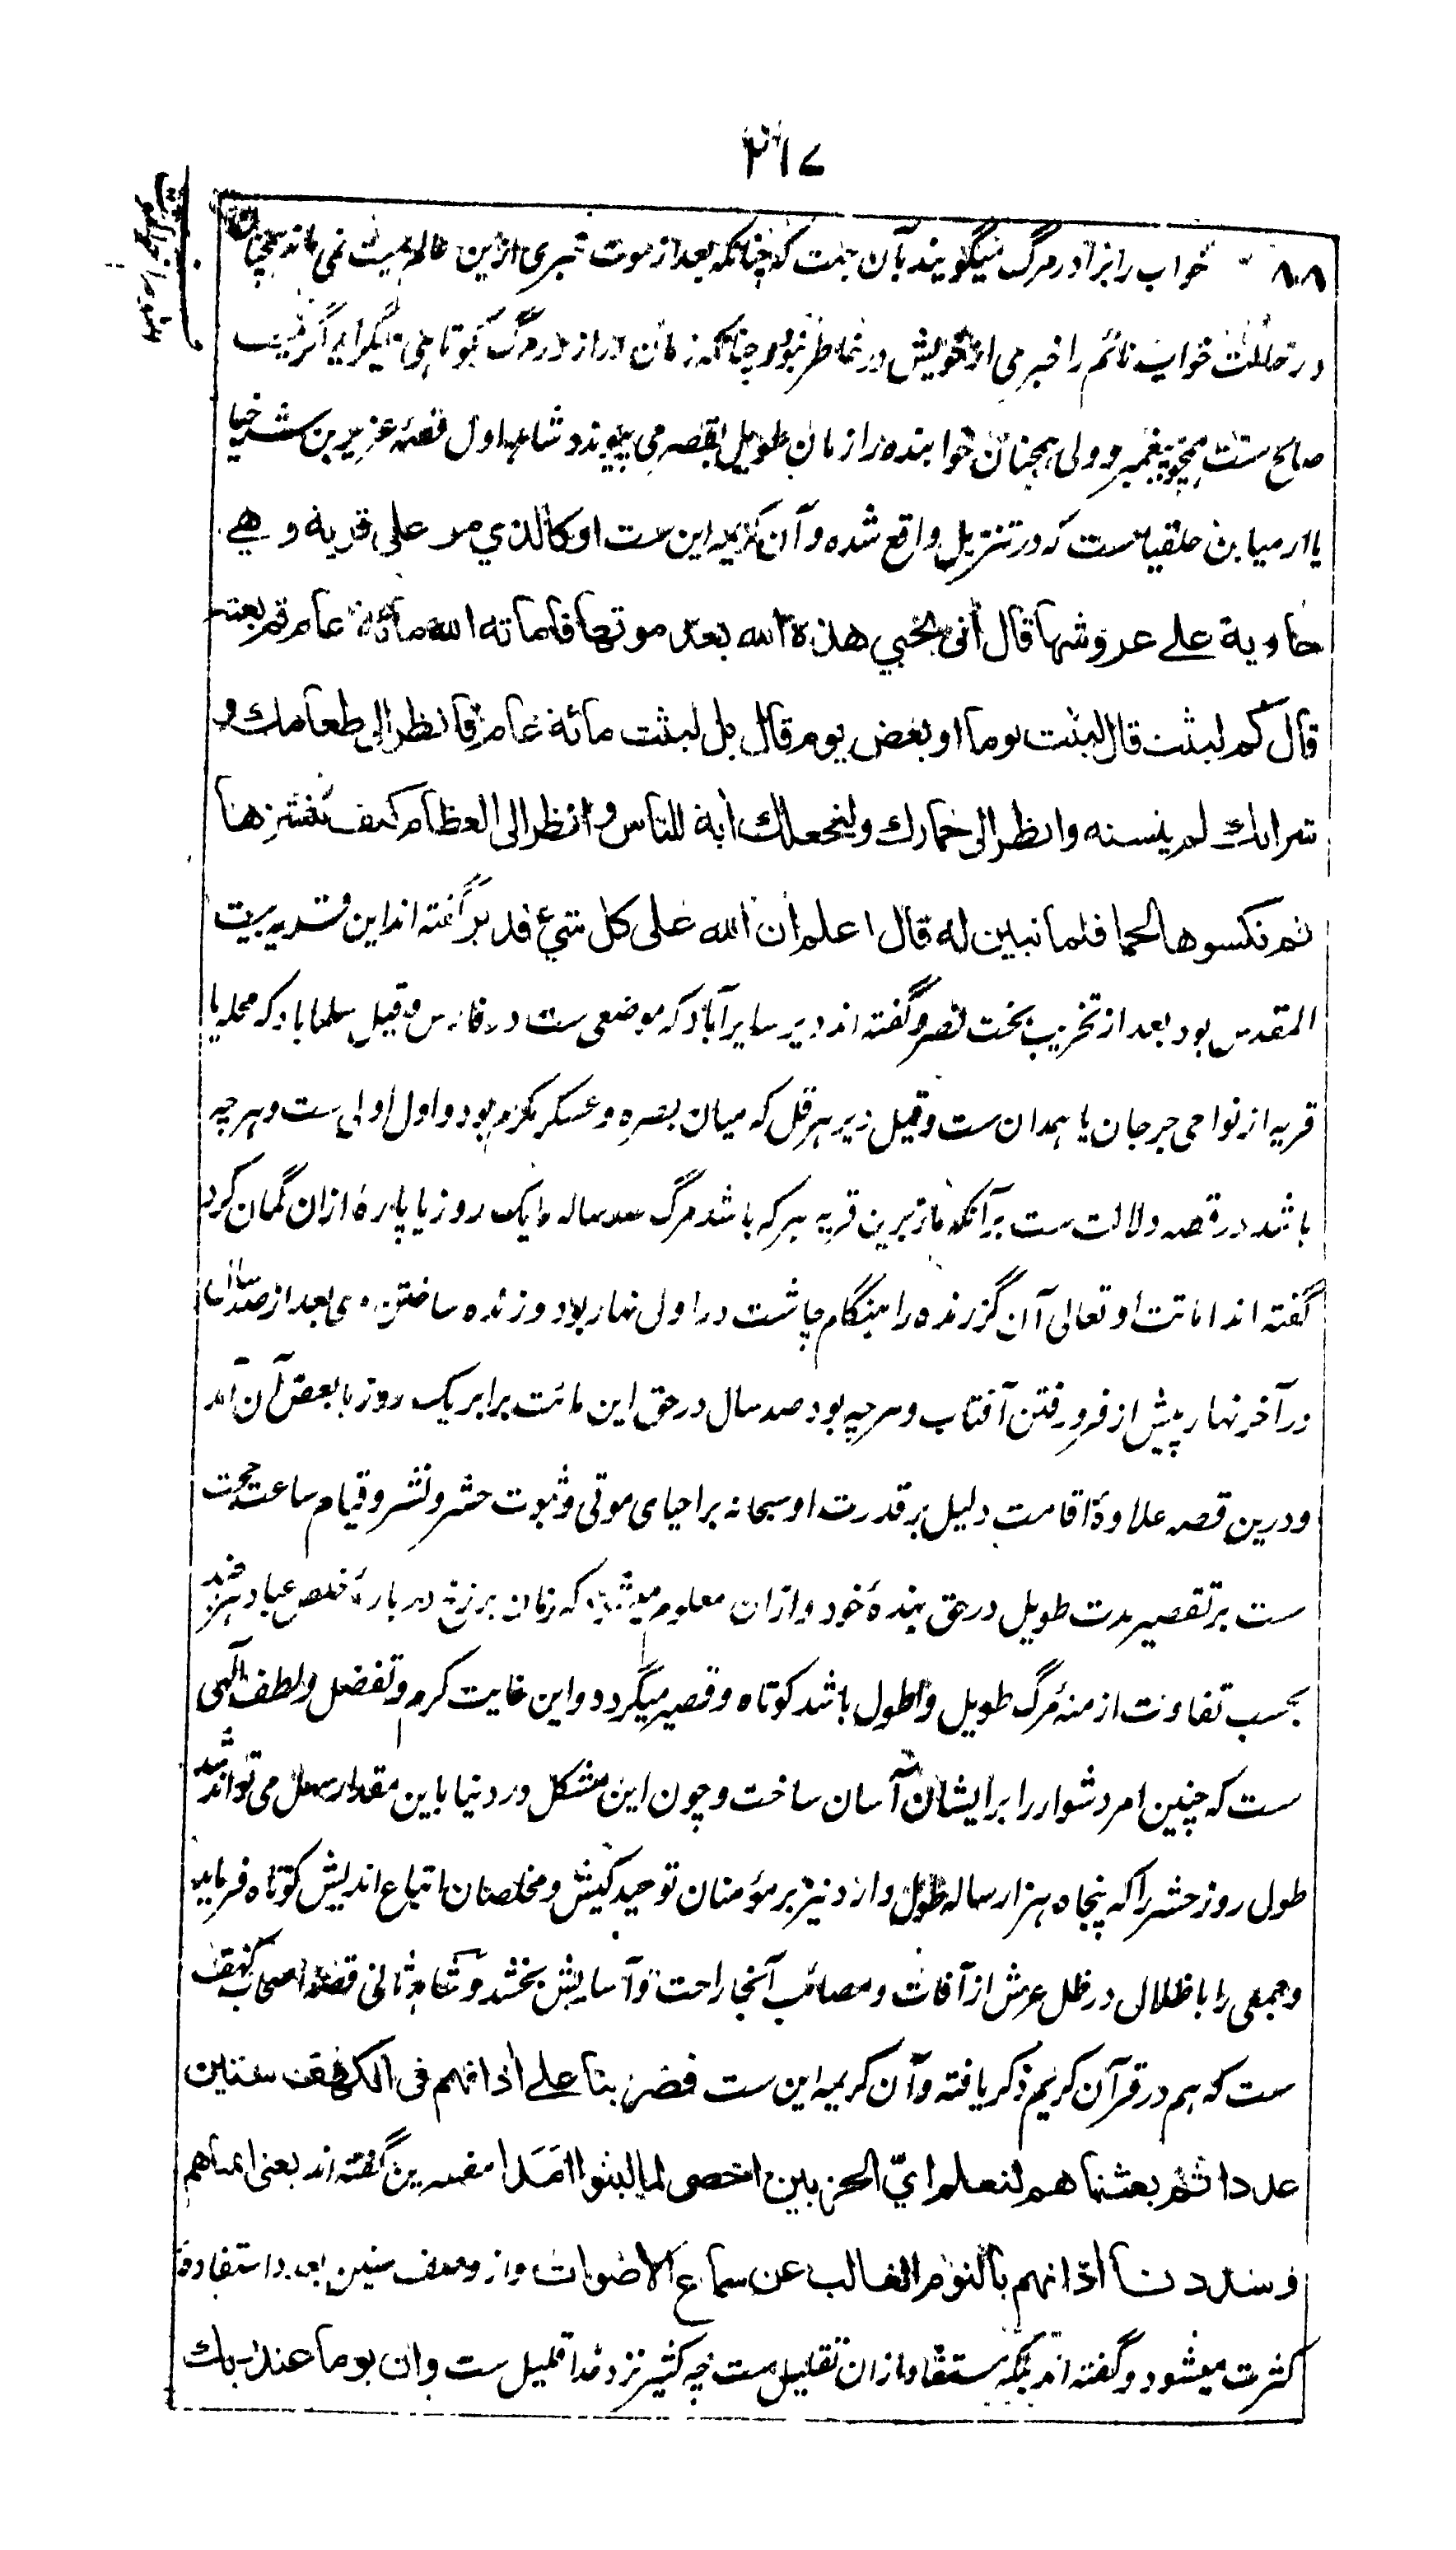 ۳۱۷
۸۰۸ خواب را برادر مرگ میگویند بآن جهت که چنانکه بعد از موت خبری ازین عالم بمیت نمی ماند همچنان
در حالت خواب نائم را خبری از خویش در خاطر نبود و چنانکه زمان دراز در مرگ بکوتاهی میگراید اگر میت
صالح ست همچو پیغمبر و ولی همچنان خوابنده را زمان طویل بقصر می پیوندد شاهد اول قصهٔ عزیر بن شرخیا
یا ارمیا بن حلقیا ست که در تنزیل واقع شده و آن کریمه این ست او كالذي مر على قرية و هي
خاوية على عروشها قال أنى يحيي هذه الله بعد موتها فاماته الله مائة عام ثم بعثه
قال كم لبثت قال لبثت يوما او بعض يوم قال بل لبثت مائة عام فانظر الى طعامك و
شرابك لم يتسنه وانظر الى حمارك ولنجعلك آية للناس و انظر الى العظام كيف ننشزها
ثم نكسوها لحما فلما تبين له قال اعلم ان الله على كل شيء قدير گفته اند این قریه بیت
المقدس بود بعد از تخریب بخت نصر و گفته اند دیر سایرآباد که موضعی ست در فارس و قیل سلماباد که محله یا
قریه از نواحی جرجان یا همدان ست و قیل دیر هرقل که میان بصره و عسکر مکرم بود و اول اولی ست و هر چه
باشد در قصه دلالت ست برآنکه مار برین قریه هر که باشد مرگ صد ساله را یک روز یا پارهٔ ازان گمان کرد
گفته اند اماتت او تعالی آن گزرنده را هنگام چاشت در اول نهار بود و زنده ساختن وی بعد از صد سال
در آخر نهار پیش از فرو رفتن آفتاب و هرچه بود صد سال در حق این مائت برابر یک روز یا بعض آن آمد
و درین قصه علاوهٔ اقامت دلیل بر قدرت او سبحانه بر احیای موتی و ثبوت حشر و نشر و قیام ساعت حجت
ست بر تقصیر مدت طویل در حق بندهٔ خود و ازان معلوم میشود که زمان برزخ در بارهٔ خلص عباد هر چند
بحسب تفاوت ازمنهٔ مرگ طویل و اطول باشد کوتاه و قصیر میگردد و این غایت کرم و تفضل و لطف الٰهی
ست که چنین امر دشوار را بر ایشان آسان ساخت و چون این مشکل در دنیا باین مقدار سهل می تواند شد
طول روز حشر را که پنجاه هزار ساله طول دارد نیز بر مؤمنان توحید کیش و مخلصان اتباع اندیش کوتاه فرماید
و جمعی را با ظلالی در ظل عرش از آفات و مصائب آنجا راحت و آسایش بخشد و شاهد ثانی قصهٔ اصحاب کهف
ست که هم در قرآن کریم ذکر یافته و آن کریمه این ست فضربنا على آذانهم فى الكهف سنين
عددا ثم بعثناهم لنعلم ايّ الحزبين احصى لما لبثوا امدا مفسرین گفته اند یعنی انمناهم
وسددنا آذانهم بالنوم الغالب عن سماع الاصوات و از وصف سنین بعدد استفاده
کثرت میشود و گفته اند بلکه مستفاد ازان تقلیل ست چه کثیر نزد خدا قلیل ست وان يوما عند ربك